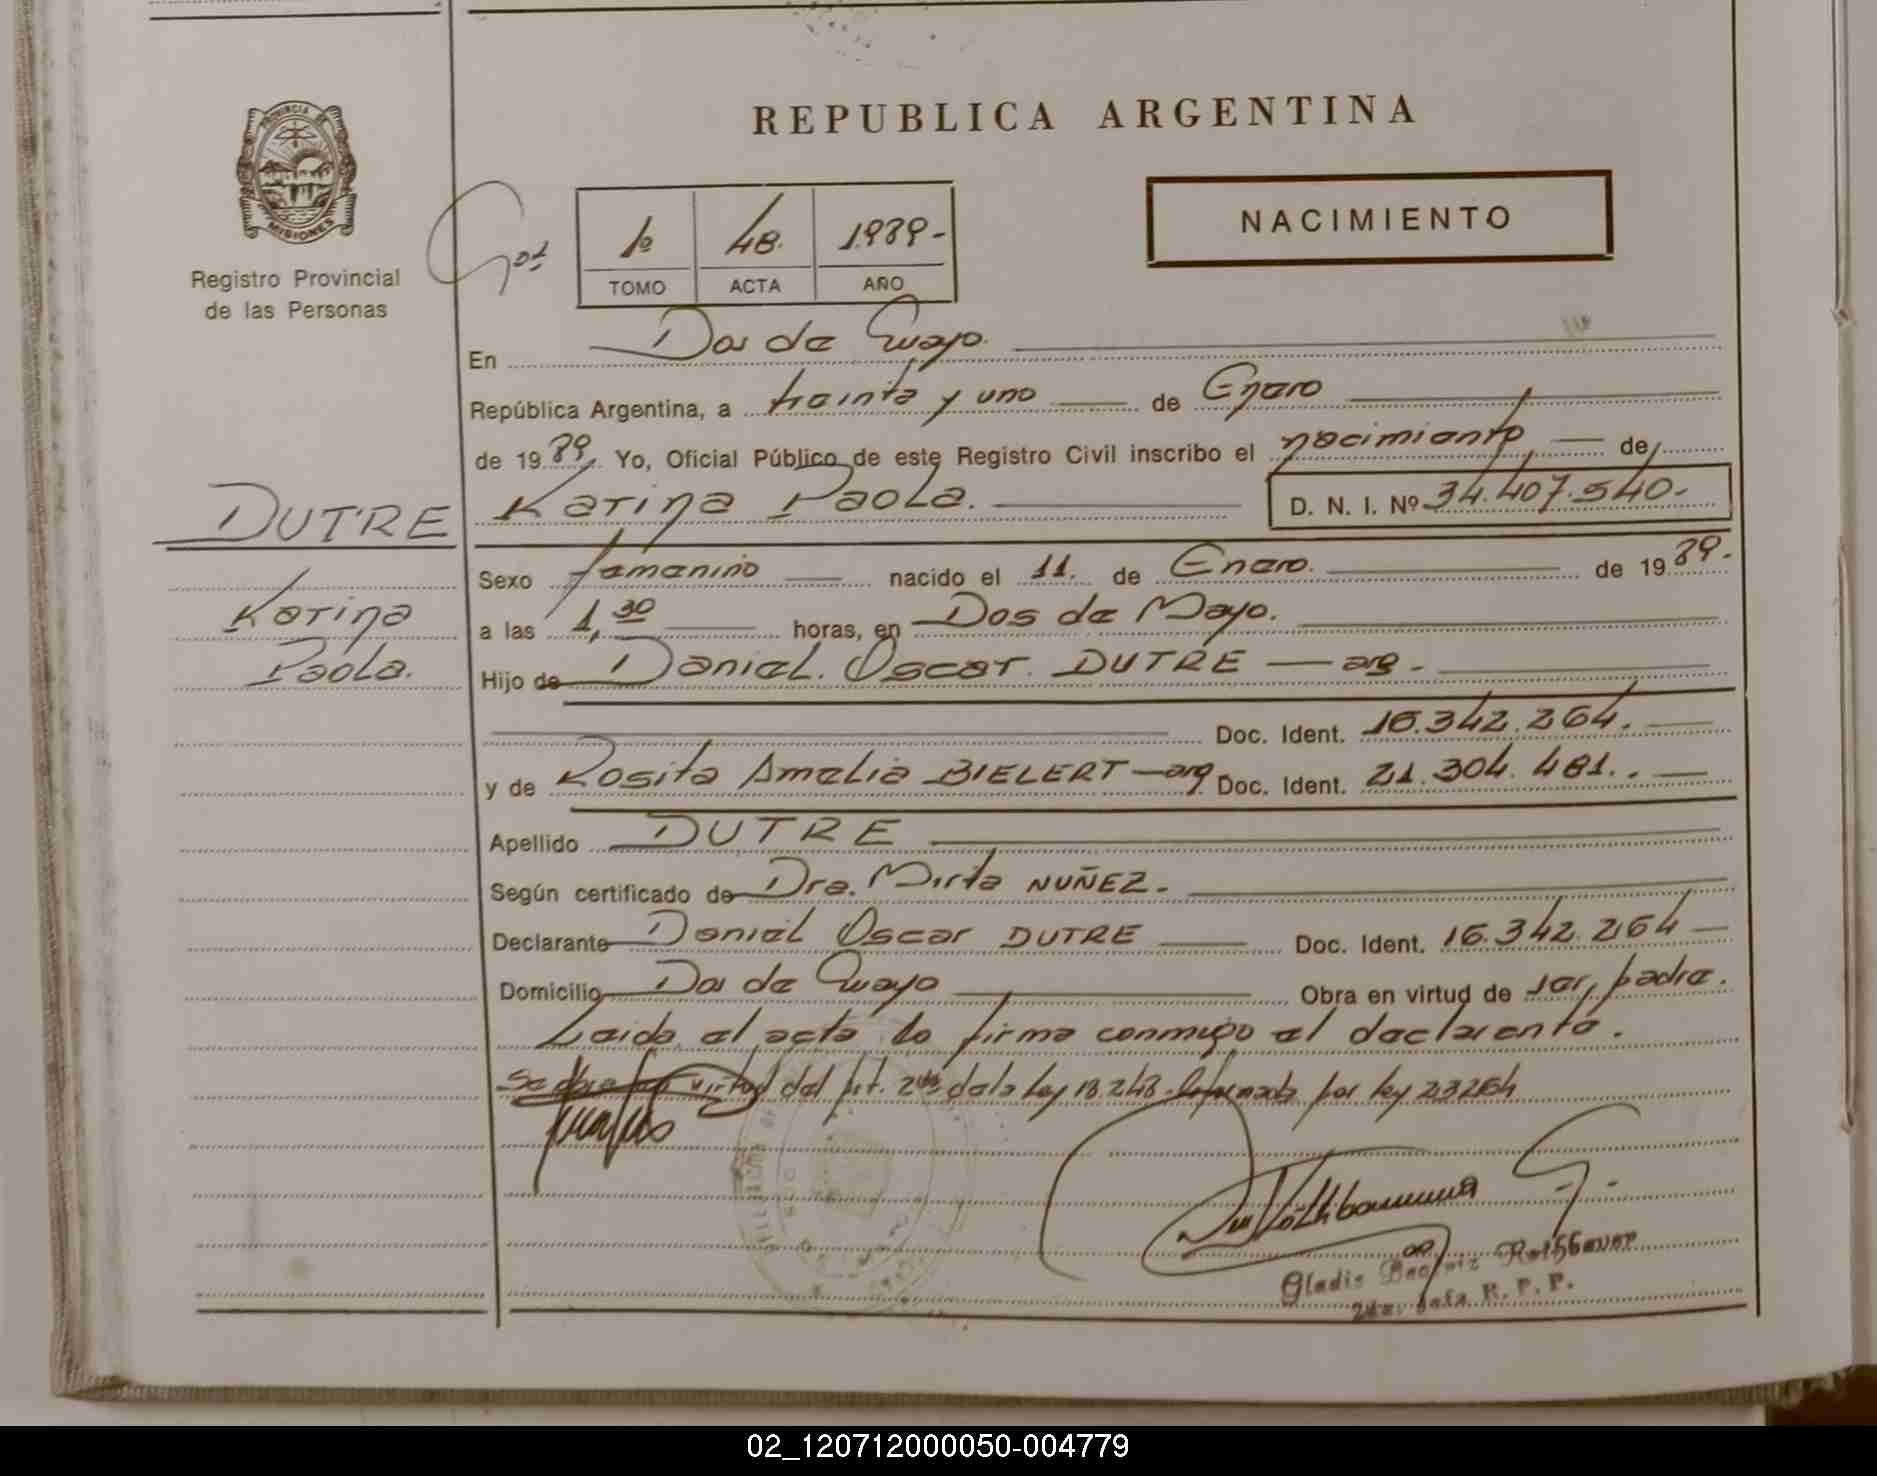 REPUBLICA ARGENTINA
PROVINCIA DE
MISIONES
Registro Provincial
de las Personas
NACIMIENTO
1º 48. 1989-
TOMO ACTA AÑO
En Dos de Mayo.
República Argentina, a treinta y uno de Enero
de 1989, Yo, Oficial Público de este Registro Civil inscribo el nacimiento de
DUTRE
Karina Paola. D. N. I. Nº 34.407.540.-
Sexo femenino nacido el 11. de Enero. de 1989.
Karina
Paola.
a las 1,30 horas, en Dos de Mayo.
Hijo de Daniel. Oscar. DUTRE — arg.
Doc. Ident. 16.342.264.
y de Rosita Amelia BIELERT — arg Doc. Ident. 21.304.481..
Apellido DUTRE
Según certificado de Dra. Mirta NUÑEZ.
Declarante Daniel Oscar DUTRE Doc. Ident. 16.342.264
Domicilio Dos de Mayo Obra en virtud de ser, padre.
Leida el acta la firma conmigo el declarante.
Se obra en virtud del Art. 2do de la ley 18.248 - Reformada por ley 23264
Gladis Beatriz Rothbauer
2da. Jefa. R. P. P.
02_120712000050-004779